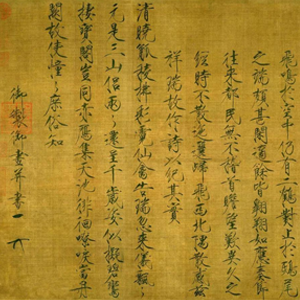 飛鳴於空中仍有二鶴對止於鴟尾
之端頗甚閑適餘皆翱翔如應奏節
往來都民無不稽首瞻望歎異久之
經時不散迤邐歸飛西北隅散感茲
祥瑞故作詩以紀其實
清曉觚稜拂彩霓仙禽告瑞忽來儀飄〻
元是三山侶兩〻還呈千歲姿似擬碧鸞
棲寶閣豈同赤雁集天池徘徊嘹唳當丹
闕故使憧〻庶俗知
御製御畫并書